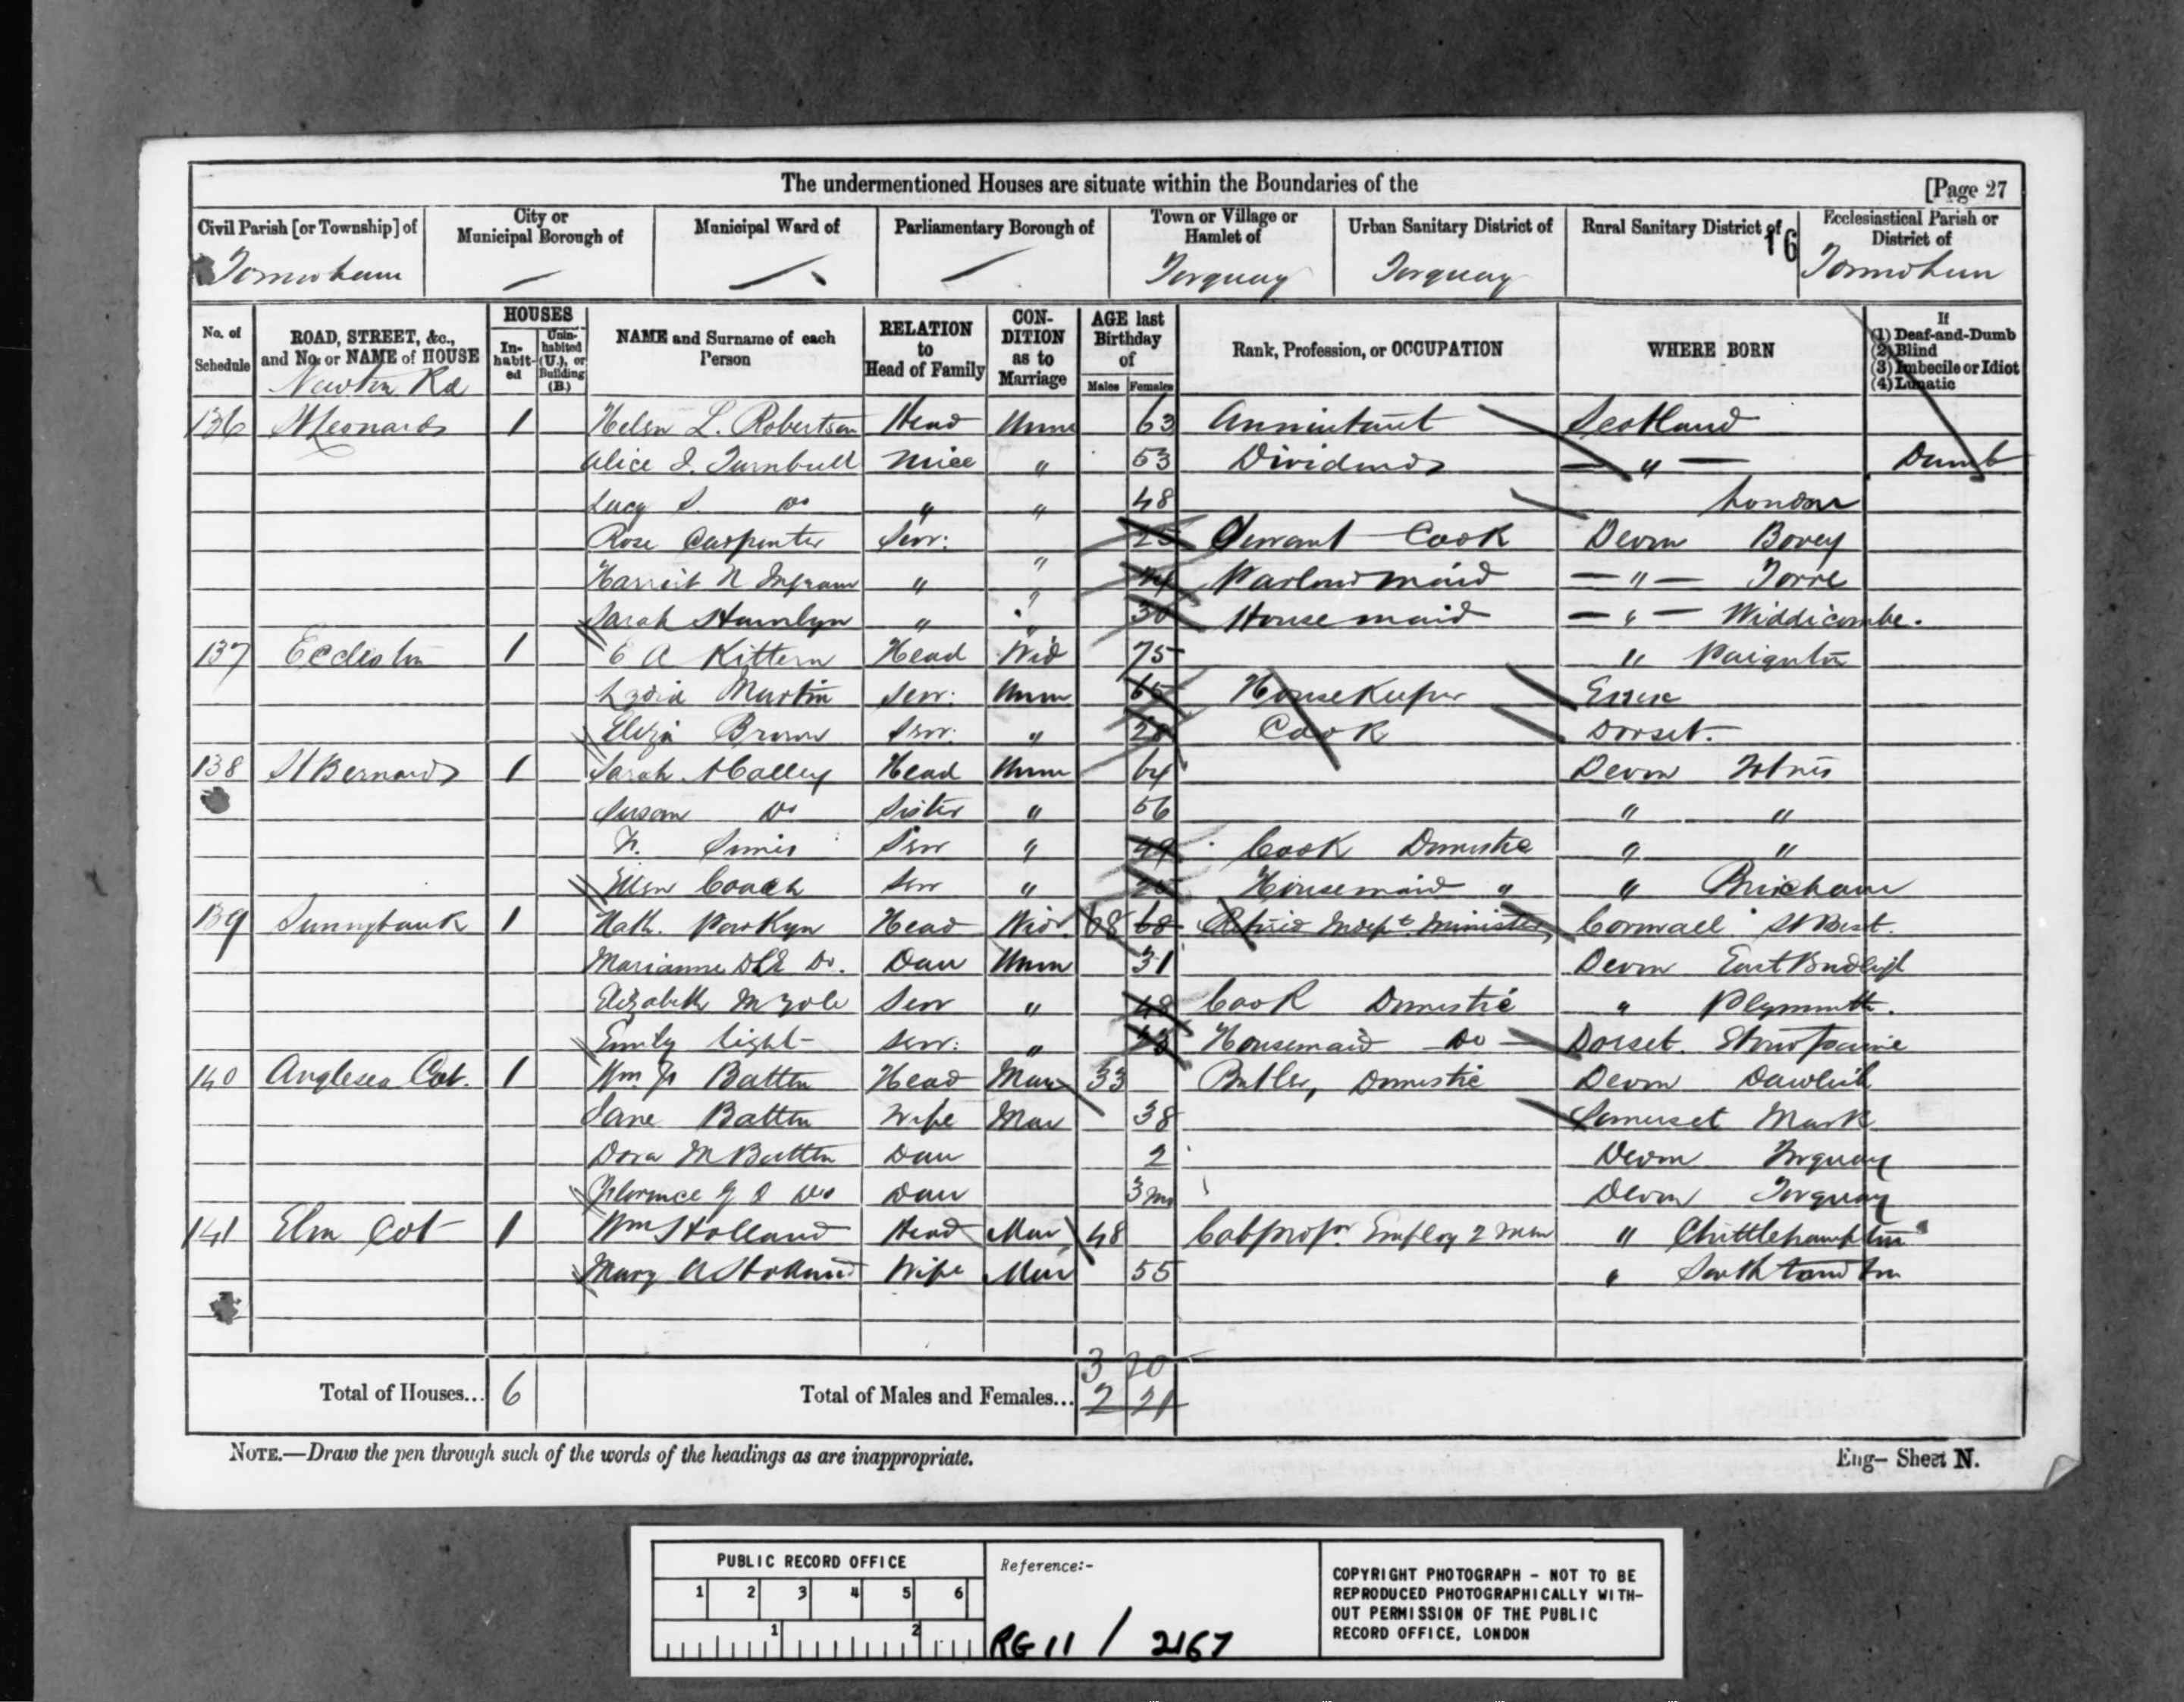 The undermentioned Houses are situate within the Boundaries of the [Page 27
Civil Parish [or Township] of City or Municipal Borough of Municipal Ward of Parliamentary Borough of Town or Village or Hamlet of Urban Sanitary District of Rural Sanitary District of Ecclesiastical Parish or District of
16
Tormoham — — — Torquay Torquay Tormohun
No. of Schedule ROAD, STREET, &c., and No. or NAME of HOUSE HOUSES In-habit-ed Unin-habited (U.), or Building (B.) NAME and Surname of each Person RELATION to Head of Family CON-DITION as to Marriage AGE last Birthday of Males Females Rank, Profession, or OCCUPATION WHERE BORN If (1) Deaf-and-Dumb (2) Blind (3) Imbecile or Idiot (4) Lunatic
Newton Rd
136 St Leonards 1 Helen L. Robertson Head Unm 63 Annuitant Scotland
Alice J. Turnbull Niece " 53 Dividends — " — Dumb
Lucy S. Do " " 48 London
Rose Carpenter Serv: " 25 Servant Cook Devon Bovey
Harriet N Ingram " " Parlourmaid — " — Torre
Sarah Hamlyn " " 30 House maid — " — Widdicombe.
137 Eccleston 1 E A Kittern Head Wid 75 " Paignton
Lydia Martin Serv: Unm 65 Housekeeper Essex
Eliza Brown Serv: " 28 Cook Dorset.
138 St Bernards 1 Sarah Head Unm 64 Devon Totnes
Susan Do Sister " 56 " "
Serv " 49 Cook Domestic " "
Ellen Couch Serv " Housemaid " " Brixham
139 Sunnybank 1 Nath. Parkyn Head Wid. 68 68 Retired Indept Minister Cornwall St
Marianne Do. Dau Unm 31 Devon East Budleigh
Elizabeth Serv " 48 Cook Domestic " Plymouth.
Emily Light Serv: " 43 Housemaid Do Dorset. Stourpaine
140 Anglesea Cot. 1 Wm Batten Head Mar 33 Butler, Domestic Devon Dawlish
Jane Batten Wife Mar 38 Somerset Mark
Dora M Batten Dau 2 Devon Torquay
Florence Do Dau 3 mo Devon Torquay
141 Elm Cot 1 Wm Holland Head Mar 48 Cab propr. Employ 2 men " Chittlehampton
Mary A Holland Wife Mar 55 " South Tawton
3 20
Total of Houses... 6 Total of Males and Females... 2 21
NOTE.—Draw the pen through such of the words of the headings as are inappropriate. Eng— Sheet N.
PUBLIC RECORD OFFICE
1 2 3 4 5 6
1 2
Reference:-
RG 11 / 2167
COPYRIGHT PHOTOGRAPH - NOT TO BE
REPRODUCED PHOTOGRAPHICALLY WITH-
OUT PERMISSION OF THE PUBLIC
RECORD OFFICE, LONDON